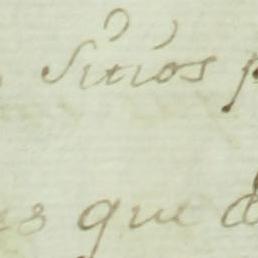 Sitios p
es que d